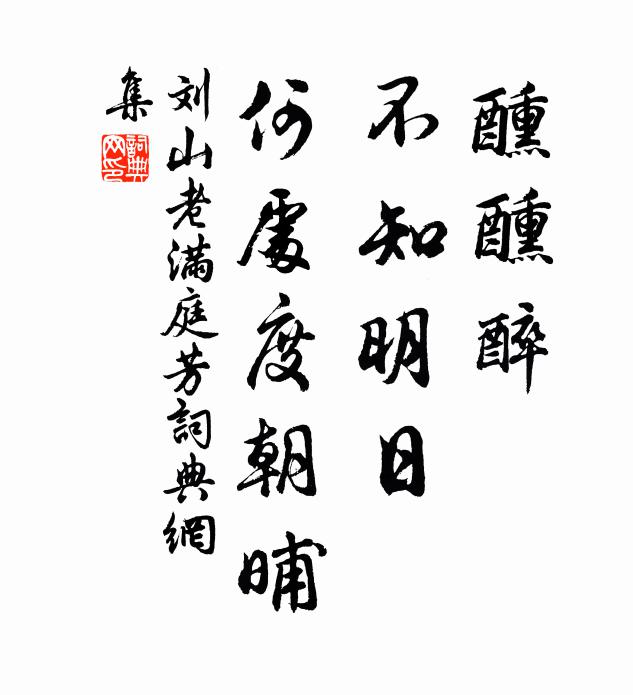 醺醺醉
不知明日
何處度朝晡
刘山老滿庭芳詞典網
集
詞典网印